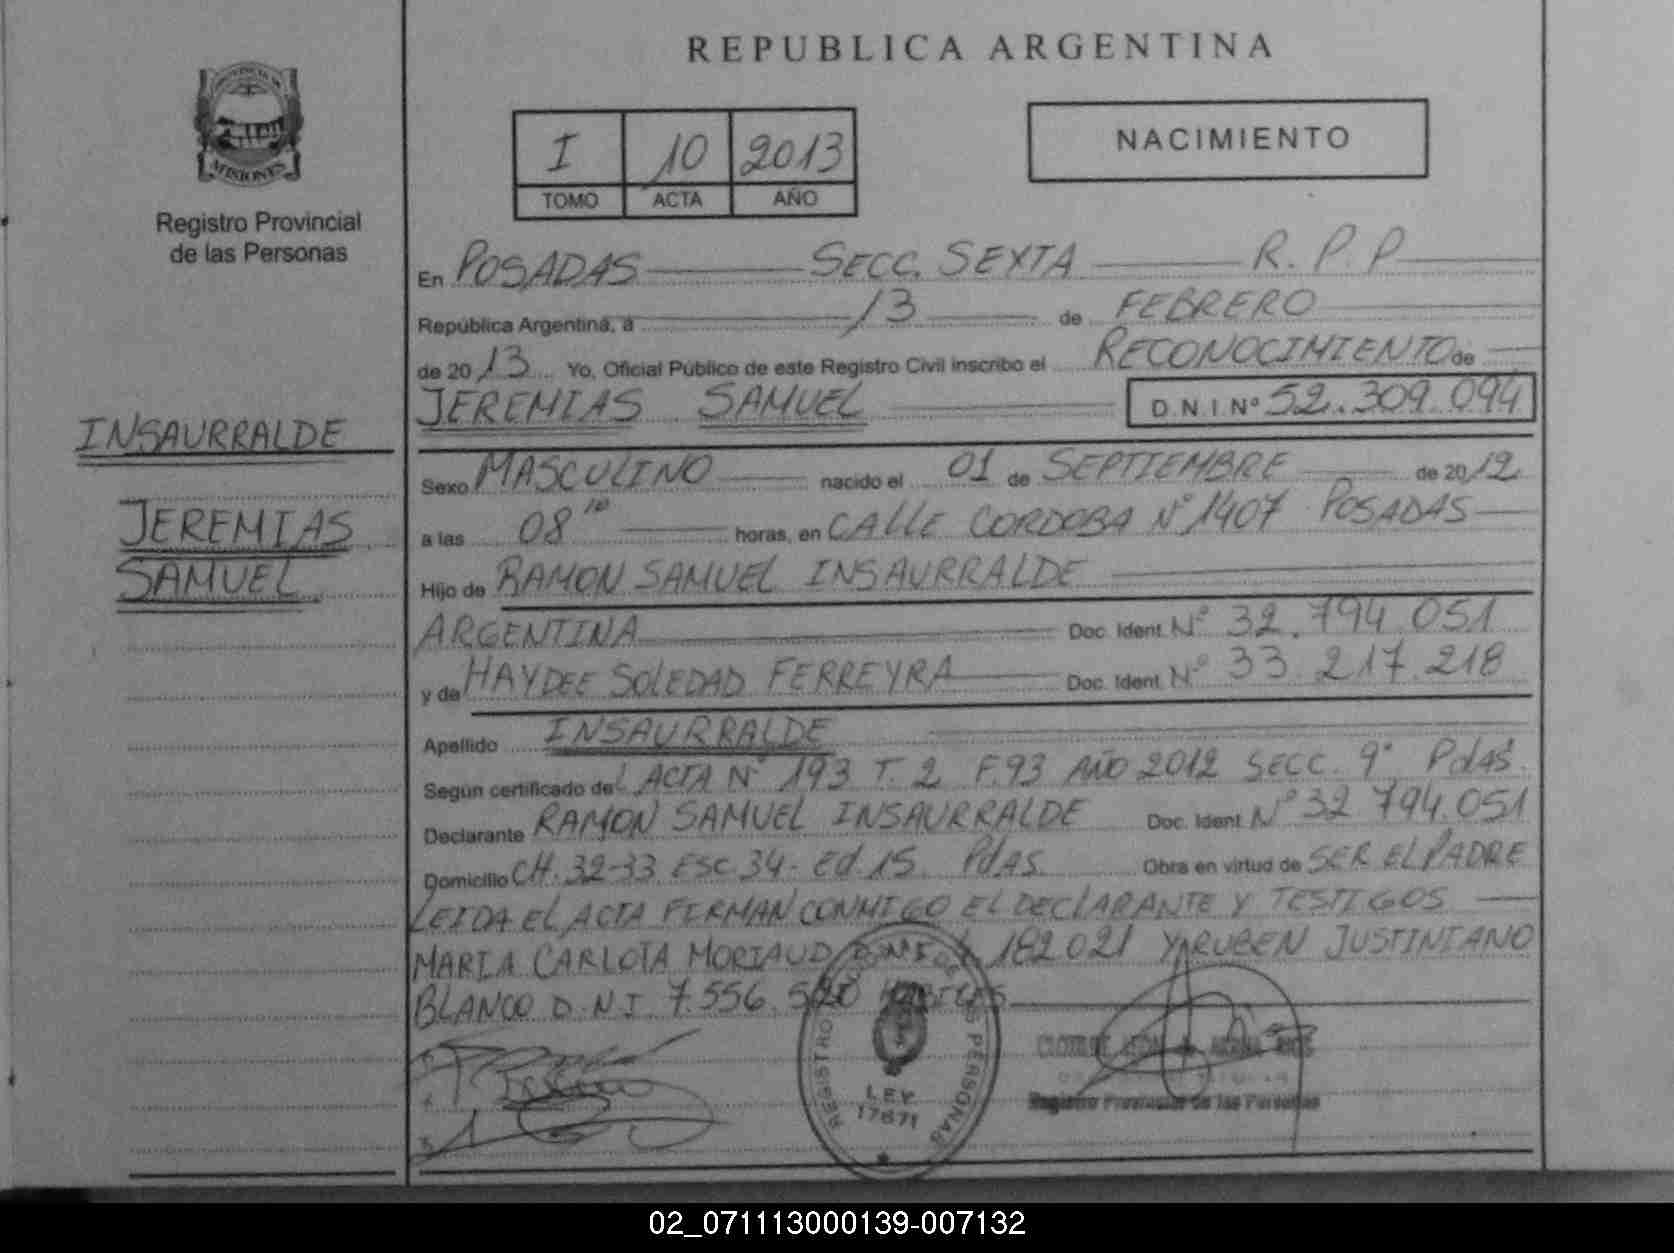 REPUBLICA ARGENTINA
PROVINCIA DE
MISIONES
Registro Provincial
de las Personas
I 10 2013
TOMO ACTA AÑO
NACIMIENTO
En POSADAS SECC. SEXTA R.P.P
República Argentina, a 13 de FEBRERO
de 2013 Yo, Oficial Público de este Registro Civil inscribo el RECONOCIMIENTO de
JEREMIAS SAMUEL D.N.I Nº 52.309.094
INSAURRALDE
JEREMIAS
SAMUEL
Sexo MASCULINO nacido el 01 de SEPTIEMBRE de 2012
a las 08 10 horas, en CALLE CORDOBA Nº 1407 POSADAS
Hijo de RAMON SAMUEL INSAURRALDE
ARGENTINA Doc. Ident. Nº 32.794.051
y de HAYDEE SOLEDAD FERREYRA Doc. Ident. Nº 33.217.218
Apellido INSAURRALDE
Según certificado del ACTA Nº 193 T. 2 F.93 AÑO 2012 SECC. 9º PdAS.
Declarante RAMON SAMUEL INSAURRALDE Doc. Ident. Nº 32 794.051
Domicilio CH. 32-33 ESC. 34- Ed. 15. PdAS. Obra en virtud de SER EL PADRE
LEIDA EL ACTA FIRMAN CONMIGO EL DECLARANTE Y TESTIGOS
MARIA CARLOTA MORIAUD 182021 Y RUBEN JUSTINIANO
BLANCO D.N.I. 7.556.
REGISTRO DE LAS PERSONAS
LEY
17671
Registro Provincial de las Personas
02_071113000139-007132